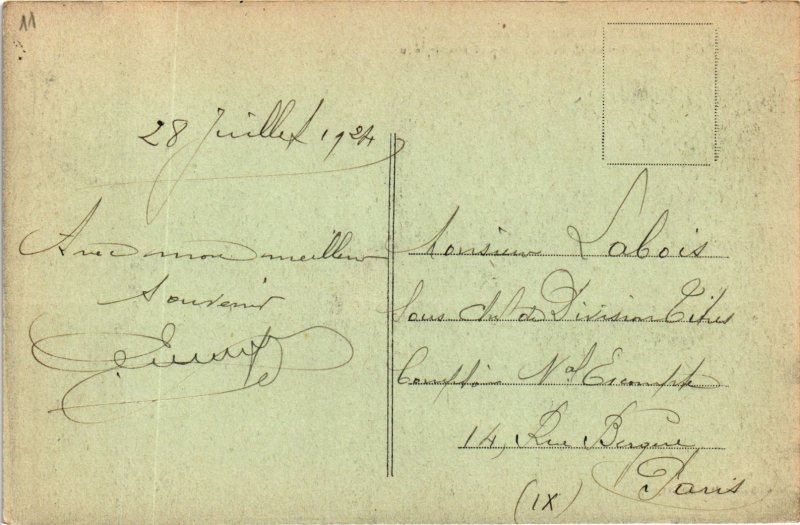 11
28 Juillet 1924
Avec mon meilleur
souvenir
Monsieur Labois
Sous Chef de Division Titres
Comptoir Nal Escompte
14, Rue Bergère
Paris
(IX)